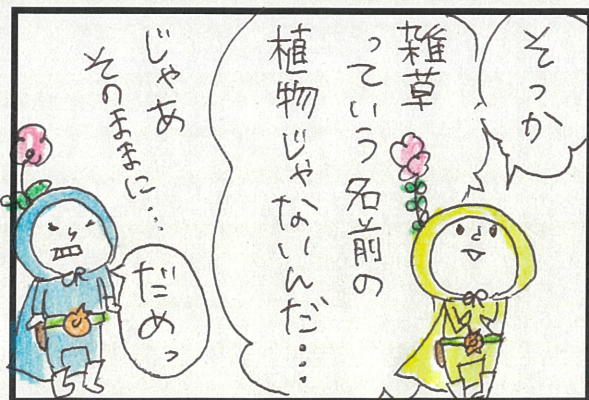 そっか
雑草
っていう名前の
植物じゃないんだ・・・
じゃあ
そのままに・・・
だめっ